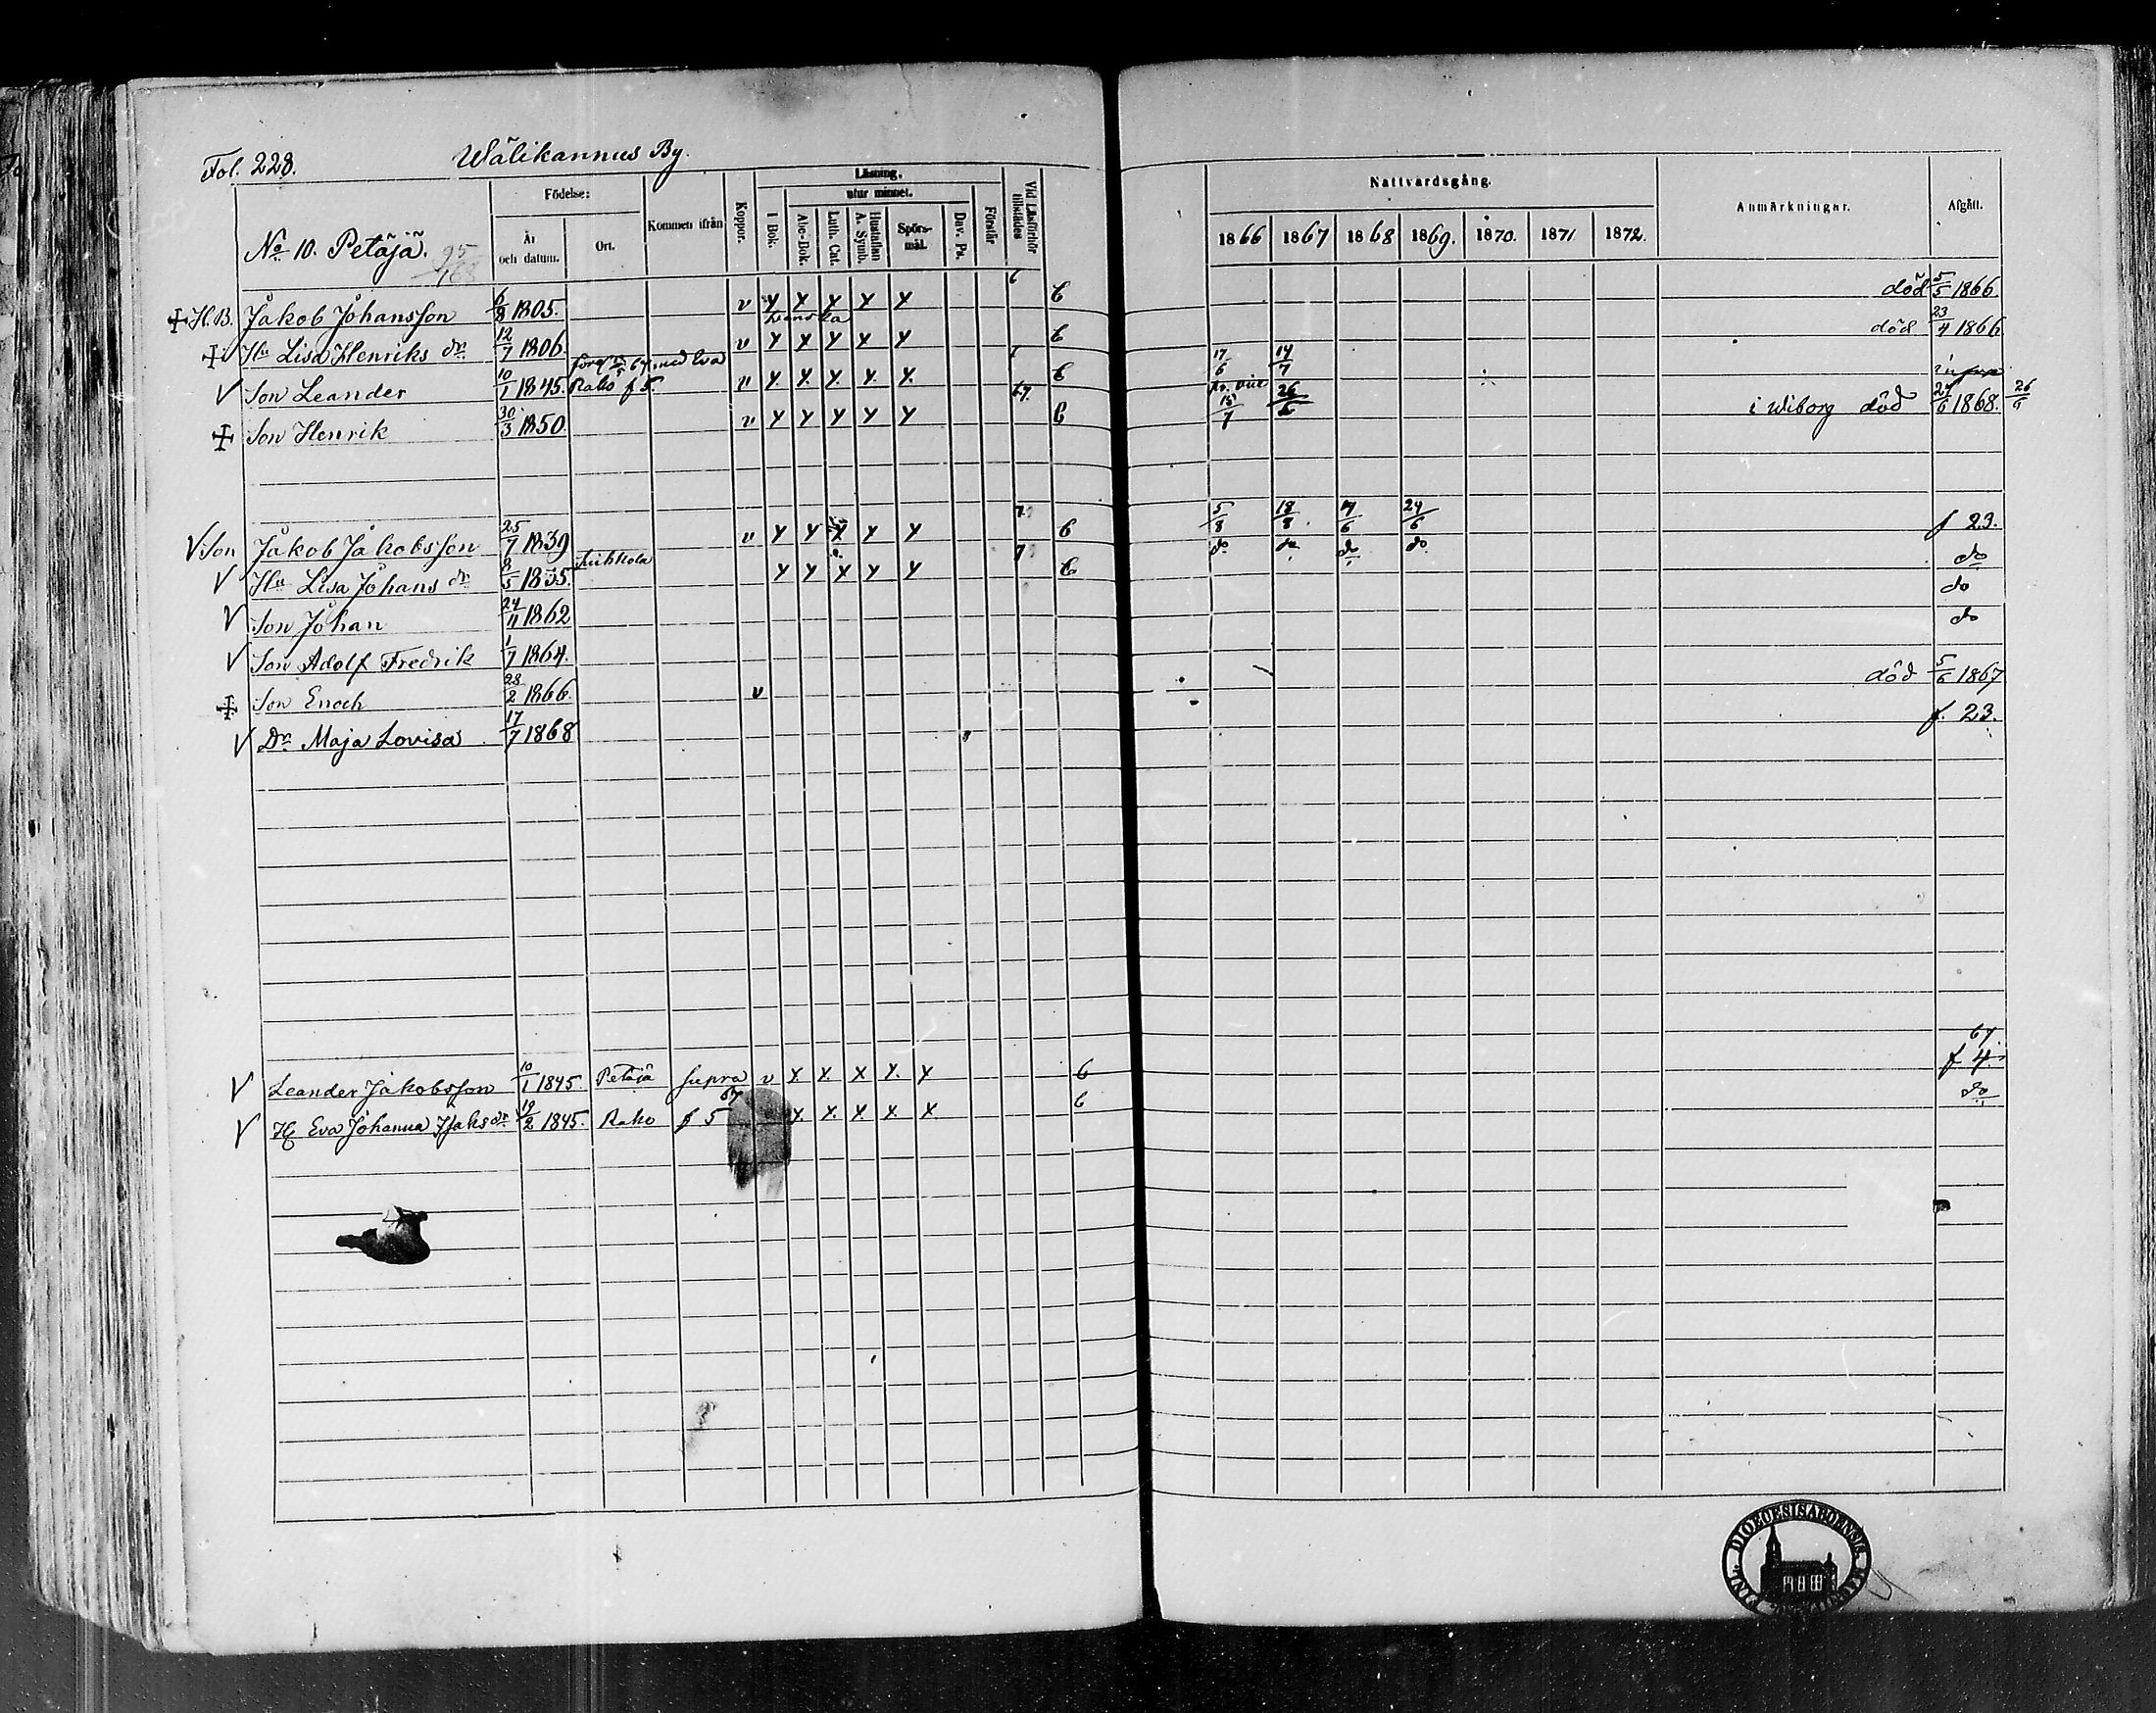 Fol. 228. Wälikannus By.
Födelse: Läsning. Nattvardsgång.
utur minnet.
No 10. Petäjä. 95/168 År och datum. Ort. Kommen ifrån Koppor. I Bok. Abc-Bok. Luth. Cat. Hustaflan A. Symb. Spörs-mål. Dav. Ps. Förstår Vid Läsförhör tillstädes 1866 1867 1868 1869. 1870. 1871 1872. Anmärkningar. Afgått.
H.B. Jakob Johansson 6/8 1805. v x x x x x 6 död 5/5 1866.
Hu Lisa Henriks dr 12/7 1806. v x x x x x 6 död 23/4 1866
V Son Leander 10/1 1845. Rako f 5. v x x x x x 6 17/6 14/7
Son Henrik 30/3 1850. v x x x x x 67 6 15/7 26/6 i Wiborg död 24/6 1868. 26/6
V Son Jakob Jakobsson 25/7 1839 v x x x x x 7 6 5/8 18/8 14/6 24/6 f 23.
V Hu Lisa Johans dr 8/5 1835. x x x x x 7 6 do do do do do
V Son Johan 24/11 1862 do
V Son Adolf Fredrik 1/7 1864. do
Son Enoch 28/2 1866. v död 5/6 1867
V Dr Maja Lovisa 17/7 1868 f. 23.
V Leander Jakobsson 10/1 1845. Petäjä supra v x x x x x 6 67 f 4.
V H Eva Johanna Isaks dr 19/2 1845. Rako 67 f 5 x x x x x 6 do